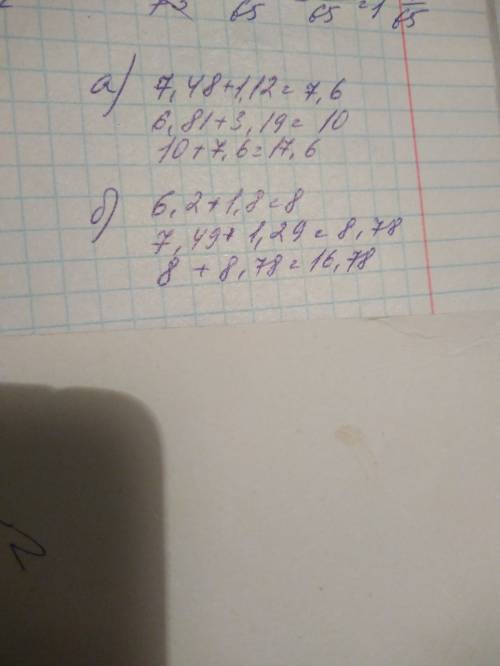 65 65 = 1 65
а) 7,48+1,12=7,6
6,81+3,19=10
10+7,6=17,6
б) 6,2+1,8=8
7,49+1,29=8,78
8+8,78=16,78